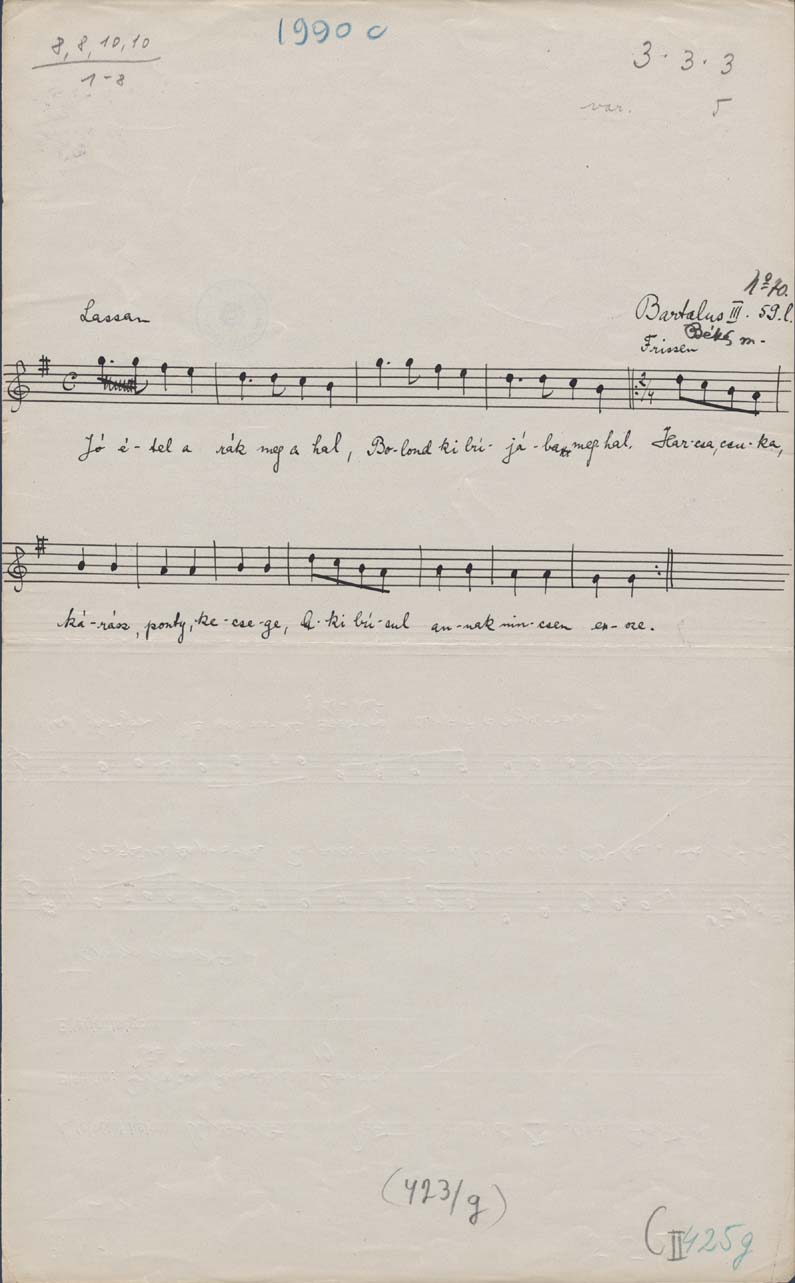 8, 8, 10, 10
1-8
1990 c
3. 3. 3
var. 5
Lassan
No 70.
Bartalus III. 59.l.
Békés m-
Frissen
C
2/4
Jó é-tel a rák meg a hal, Bo-lond ki bú-já-ba meg hal. Har-csa, csu-ka,
ká-rász, ponty, ke-cse-ge, A-ki bú-sul an-nak nin-csen esz-sze.
(423/g)
C II 425g